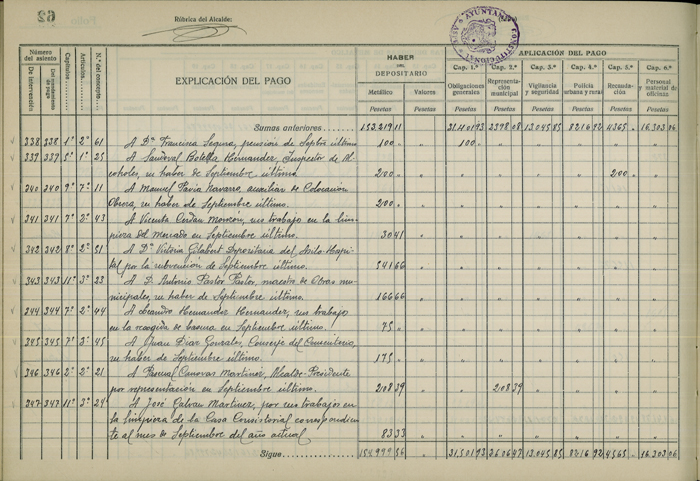 62
Rúbrica del Alcalde:
AYUNTAMIENTO CONSTITUCIONAL
Número del asiento
De intervención
Del mandamiento de pago
Capítulos
Artículos
N.º del concepto
EXPLICACIÓN DEL PAGO
HABER DEL DEPOSITARIO
Metálico Valores
Pesetas Pesetas
APLICACIÓN DEL PAGO
Cap. 1.º Cap. 2.º Cap. 3.º Cap. 4.º Cap. 5.º Cap. 6.º
Obligaciones generales Representación municipal Vigilancia y seguridad Policía urbana y rural Recaudación Personal y material de oficinas
Pesetas Pesetas Pesetas Pesetas Pesetas Pesetas
Sumas anteriores 153.219 11 31.401 93 2398 08 13.045 85 8216 92 4365 „ 16.303 06
338 338 1º 2º 61 A Dª Francisca Segura, pensión de Septbre último 100 „ 100 „
339 339 5º 1º 25 A Sandoval Botella Hernander, Inspector de Al-
coholes, su haber de Septiembre último 200 „ 200 „
340 340 9º 7º 11 A Manuel Pavía Navarro, auxiliar de Colocación
Obrera, su haber de Septiembre último. 200 „
341 341 7º 2º 43 A Vicenta Cerdán Monzón, sus trabajo en la lim-
pieza del Mercado en Septiembre último. 30 41
342 342 8º 2º 51 A Dª Victoria Gilabert Depositaria del Asilo-Hospi-
tal por la subvención de Septiembre último. 541 66
343 343 11º 3º 23 A D. Antonio Pastor Pastor, maestro de Obras mu-
nicipales, su haber de Septiembre último. 166 66
344 344 7º 2º 44 A Leandro Hernander Hernander, sus trabajo
en la recogida de basura en Septiembre último. 75 „
345 345 7º 3º 45 A Juan Diaz Gonzales, Conserje del Cementerio,
su haber de Septiembre último. 175 „
346 346 2º 2º 21 A Pascual Canovas Martinez, Alcalde-Presidente
por representación en Septiembre último. 208 39 208 39
347 347 11º 3º 24 A José Galvan Martinez, por sus trabajos en
la limpieza de la Casa Consistorial correspondien-
te al mes de Septiembre del año actual 83 33
Sigue 154.999 56 31.501 93 2606 47 13.045 85 8216 92 4565 „ 16.303 06